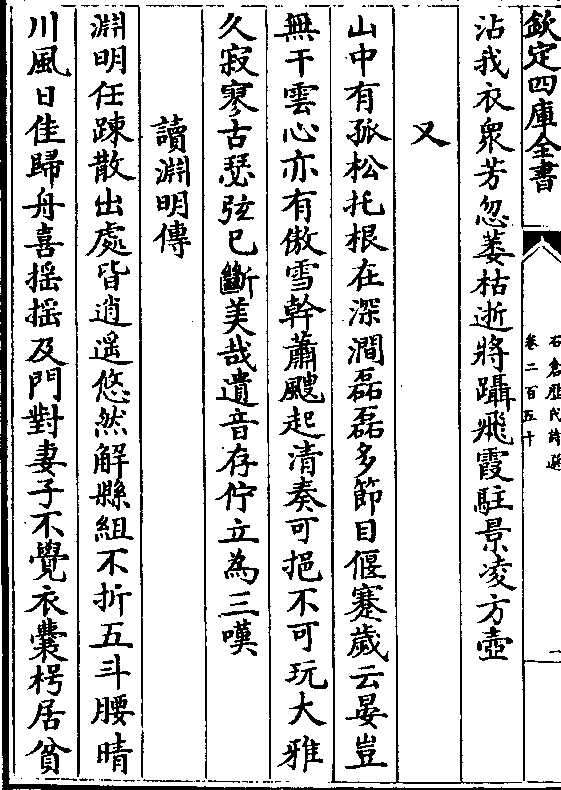 欽定四庫全書
石倉歷代詩選
卷二百五十
一
沾我衣衆芳忽萎枯逝將躡飛霞駐景凌方壺
又
山中有孤松托根在深澗磊磊多節目偃蹇歲云晏豈
無干雲心亦有傲雪幹蕭颼起清奏可挹不可玩大雅
久寂寥古瑟弦已斷美哉遺音存佇立為三嘆
讀淵明傳
淵明任踈散出處皆逍遥悠然解縣組不折五斗腰晴
川風日佳歸舟喜揺揺及門對妻子不覺衣囊枵居貧